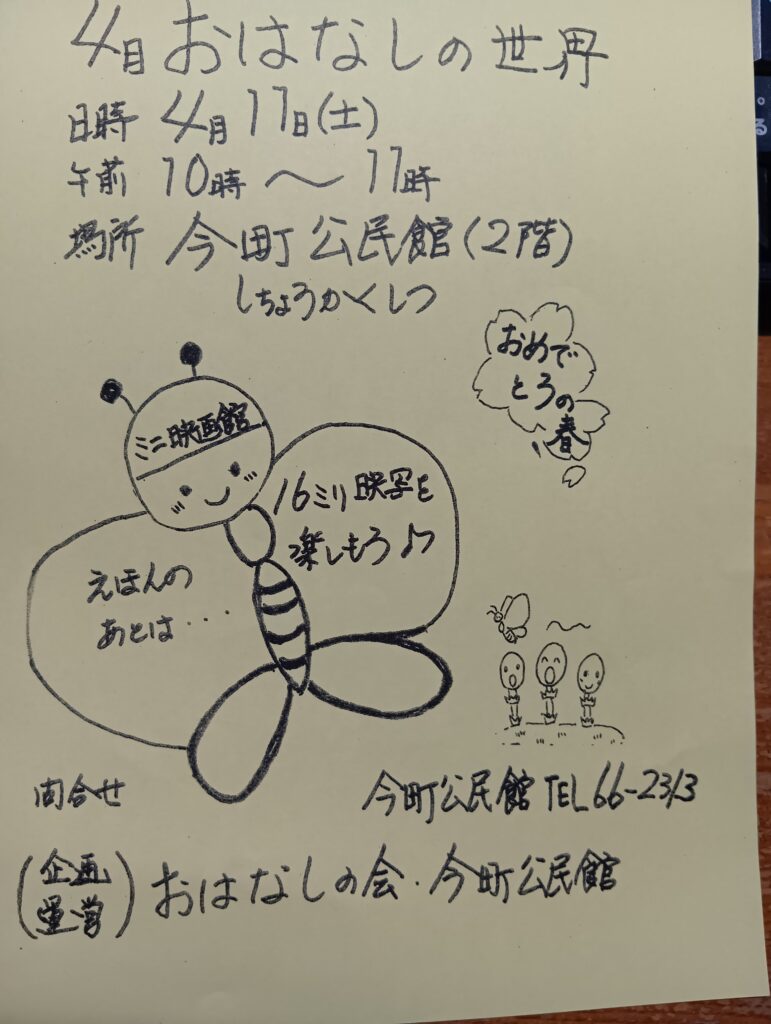 4月おはなしの世界
日時 4月11日(土)
午前 10時〜11時
場所 今町公民館(2階)
しちょうかくしつ
おめで
とうの
春
ミニ映画館
16ミリ映写を
楽しもう♪
えほんの
あとは・・・
問合せ 今町公民館 TEL 66-2313
(企画運営) おはなしの会・今町公民館